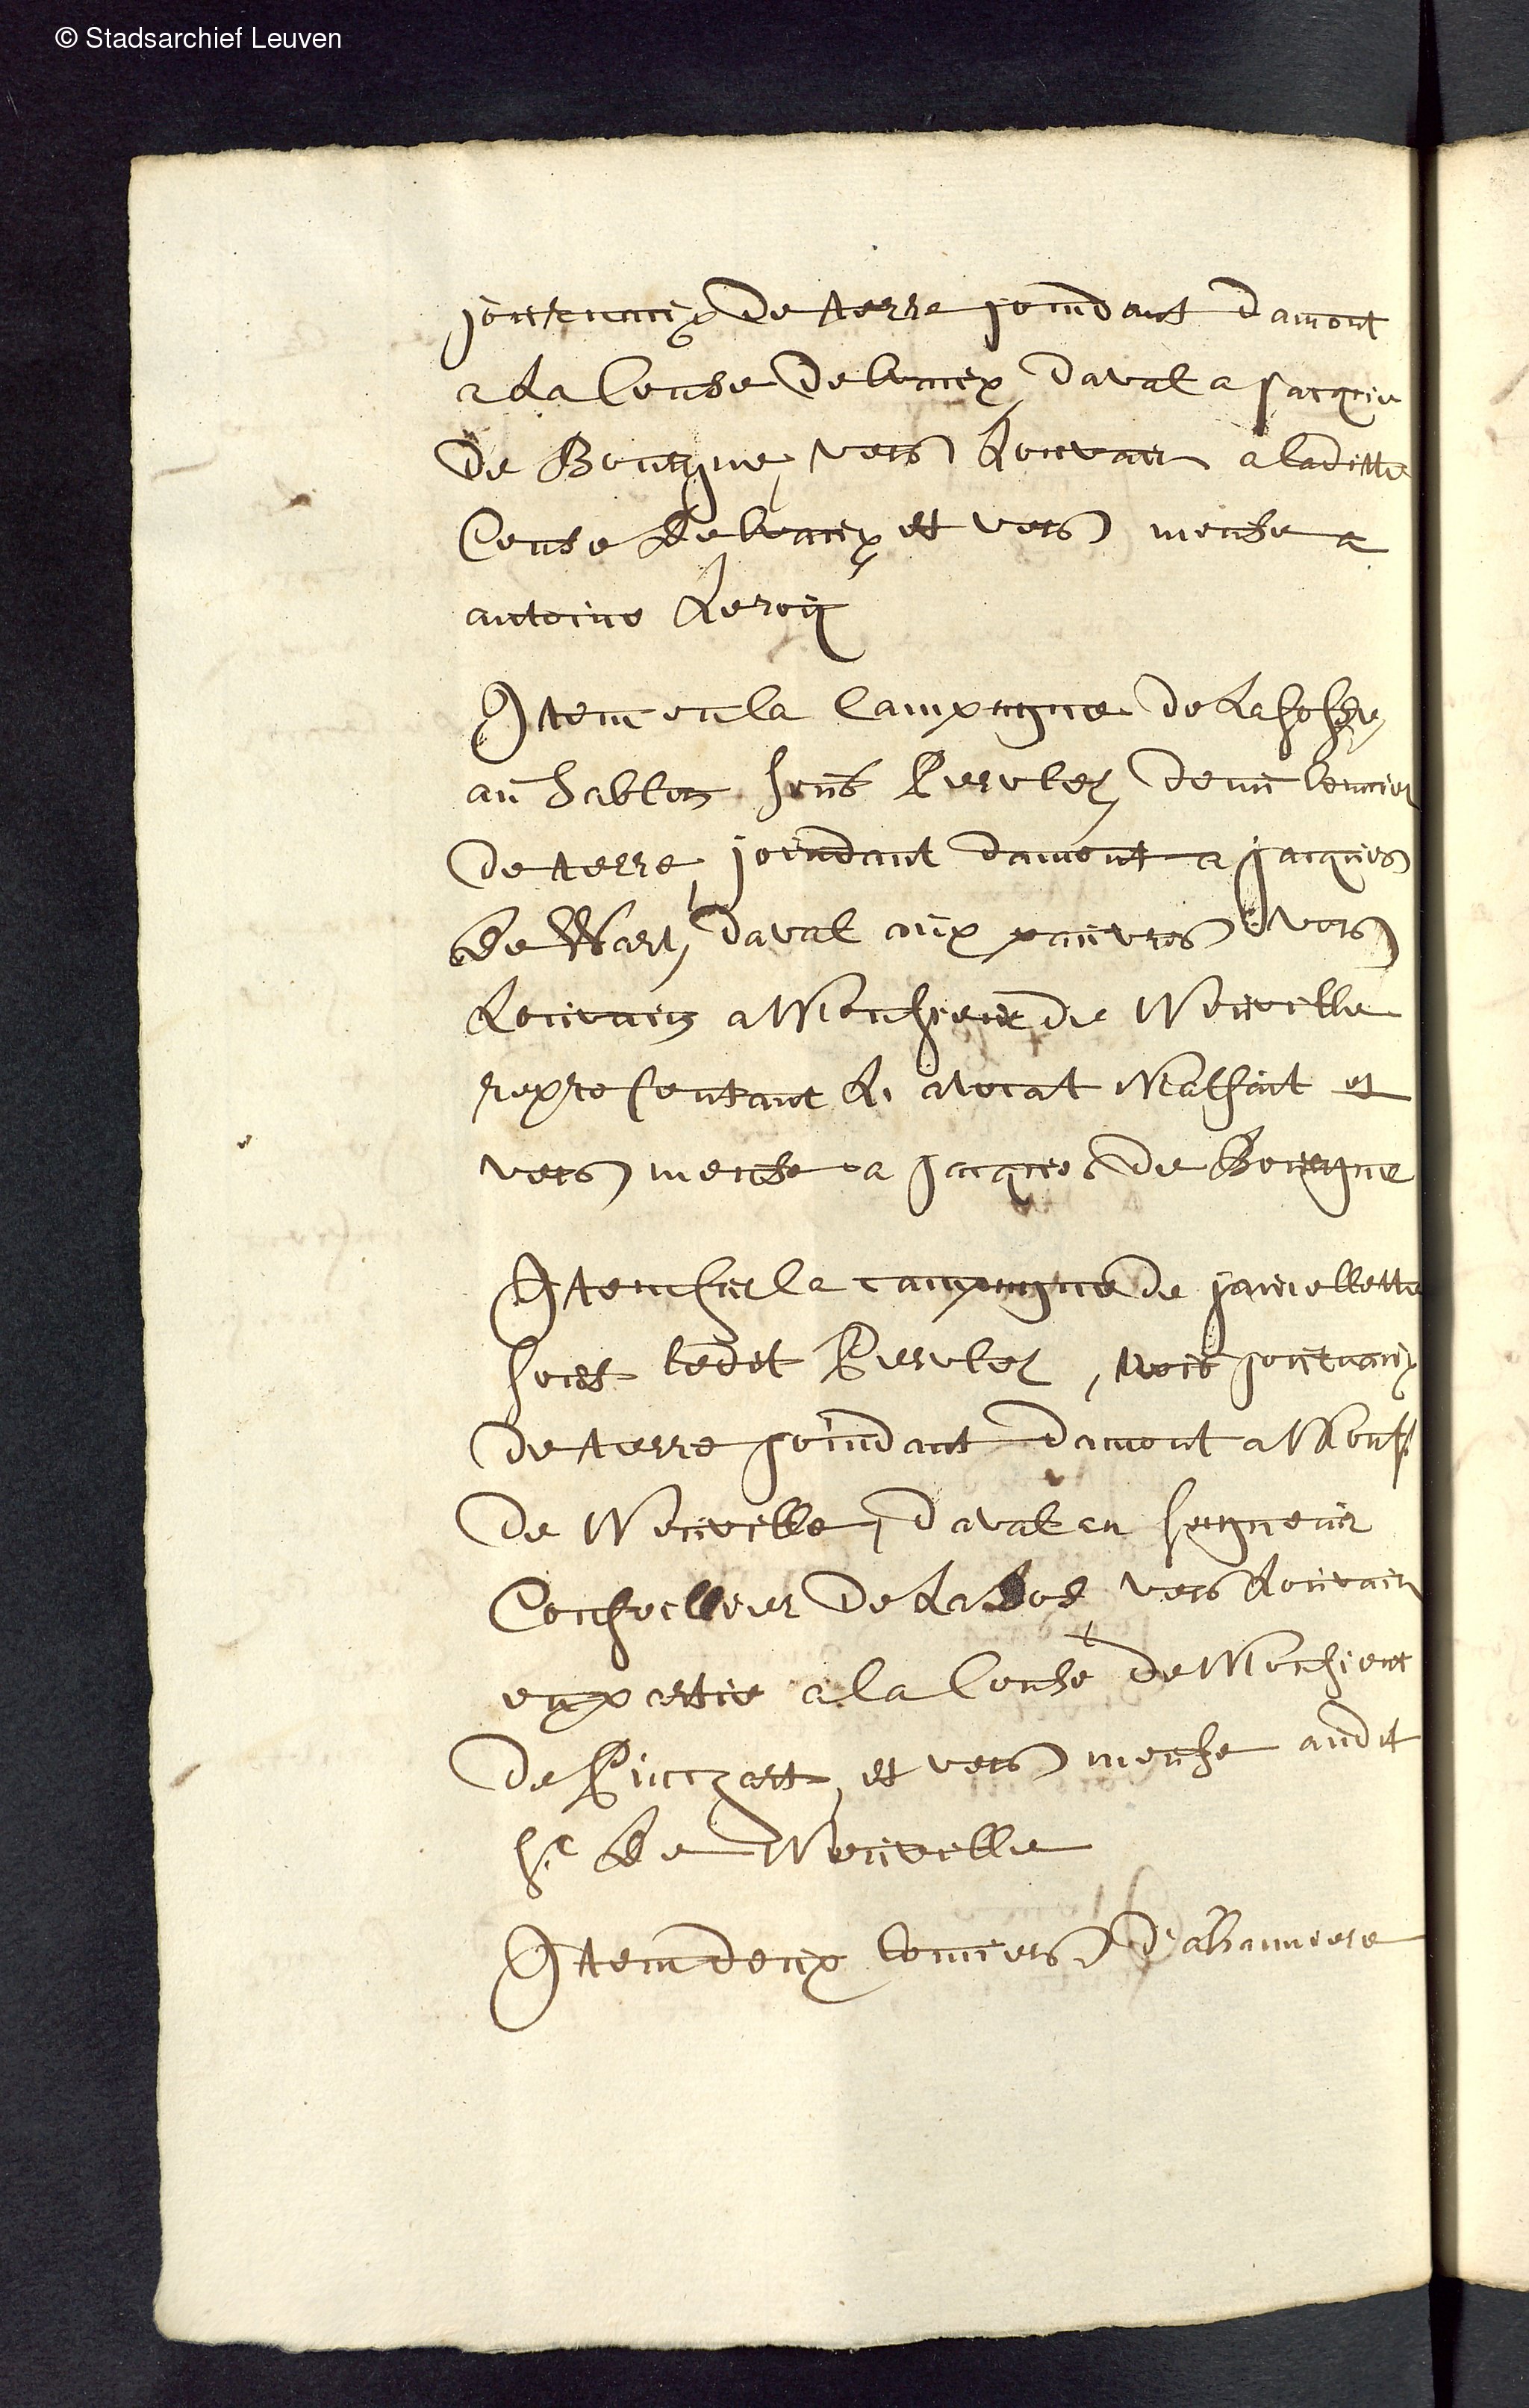 © Stadsarchief Leuven
jourrnaux de terre joindant damont
a La Cense Delvaux, daval a Jacque
de Bourgue, vers Louvain a laditte
Cense Delvaux et vers meuse a
antoine Leroÿ
Item en la Campagne de
au Sablon soub Pierebes
de terre, joindant damont a Jacques
de Wart, daval aux pauvres vers
Louvain a Monsieur de Neuville
representant L. avocat Malfait et
vers meuse a Jacques de Bourgue
Item sur la campagne de
soub ledit trois jourrnaux
de terre joindant damont a Mons.r
de Neuville, daval au Segneur
Conseillier de vers Louvain
en partie a la Cense de Monsieur
de et vers meuse audit
S.r de Neuville
Item deux bonniers